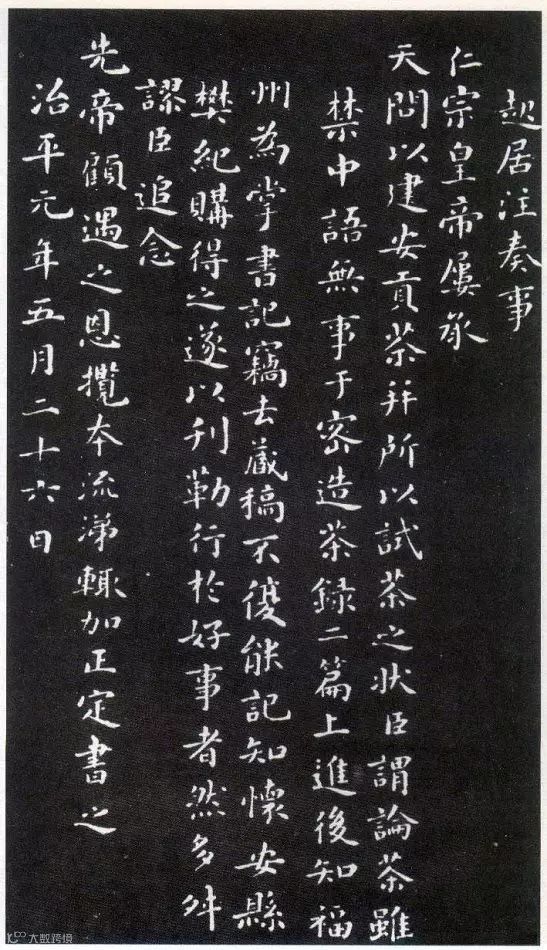 起居注奏事
仁宗皇帝屢承
天問以建安貢茶并所以試茶之狀臣謂論茶雖
禁中語無事于密造茶錄二篇上進後知福
州為掌書記竊去藏稿不復能記知懷安縣
樊紀購得之遂以刊勒行於好事者然多舛
謬臣追念
先帝顧遇之恩攬本流涕輒加正定書之
治平元年五月二十六日
大数跨境